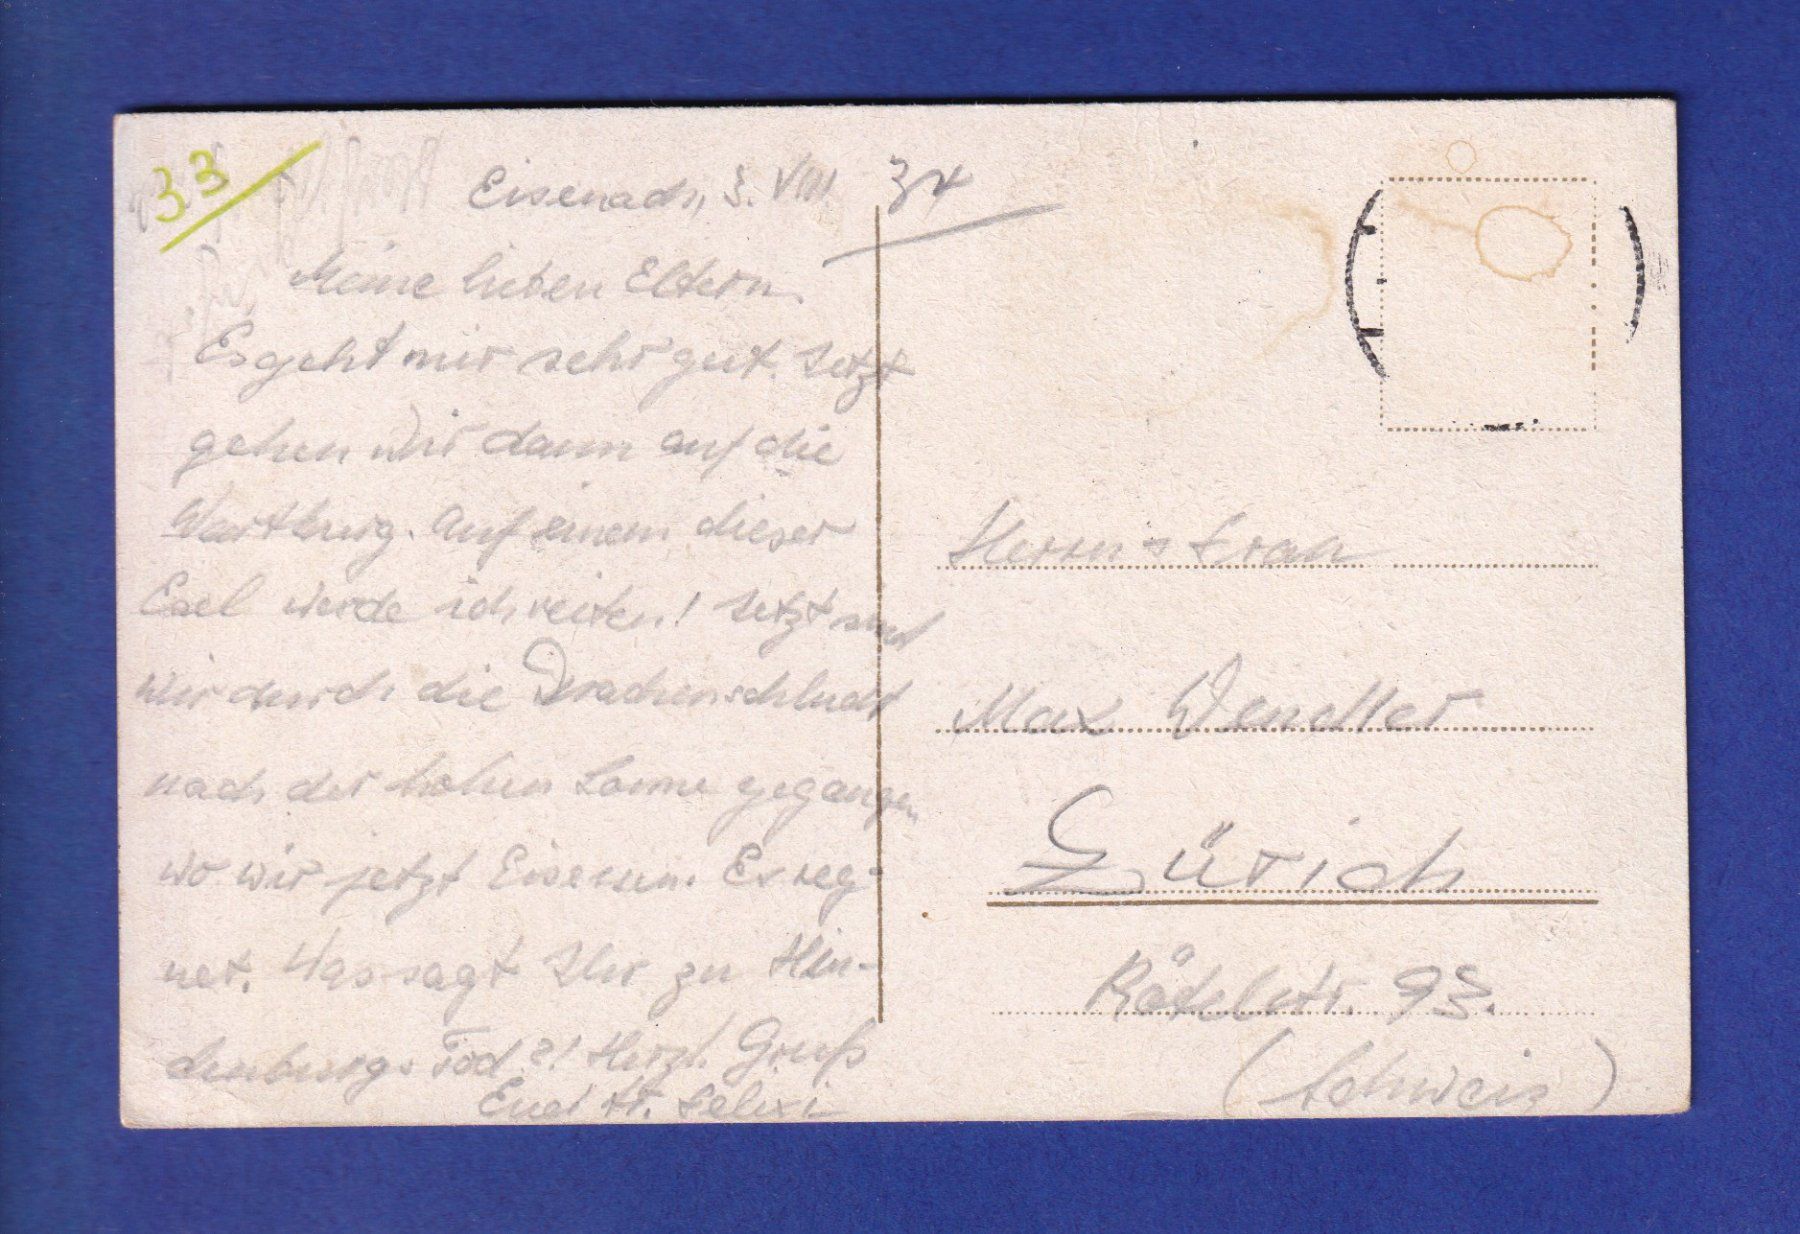 33
Eisenach, 3. VIII. 34
Meine lieben Eltern
Es geht mir sehr gut. Jetzt
gehen wir dann auf die
Wartburg. Auf einem dieser
Esel werde ich reiten! Jetzt sind
wir durch die Drachenschlucht
nach der hohen Sonne gegangen
wo wir jetzt Eisessen. Es reg-
net. Was sagt Ihr zu Hin-
denburgs Tod?! Herzl. Gruß
Euer
Herrn + Frau
Max Wendler
Zürich
Rötelstr. 93.
(Schweiz)